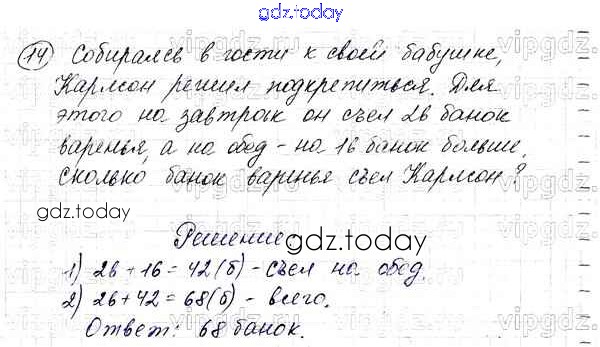 gdz.today
14 Собираясь в гости к своей бабушке,
Карлсон решил подкрепиться. Для
этого на завтрак он съел 26 банок
варенья, а на обед - на 16 банок больше.
Сколько банок варенья съел Карлсон?
gdz.today
Решение
gdz.today
1) 26 + 16 = 42 (б) - съел на обед.
2) 26 + 42 = 68 (б) - всего.
Ответ: 68 банок.